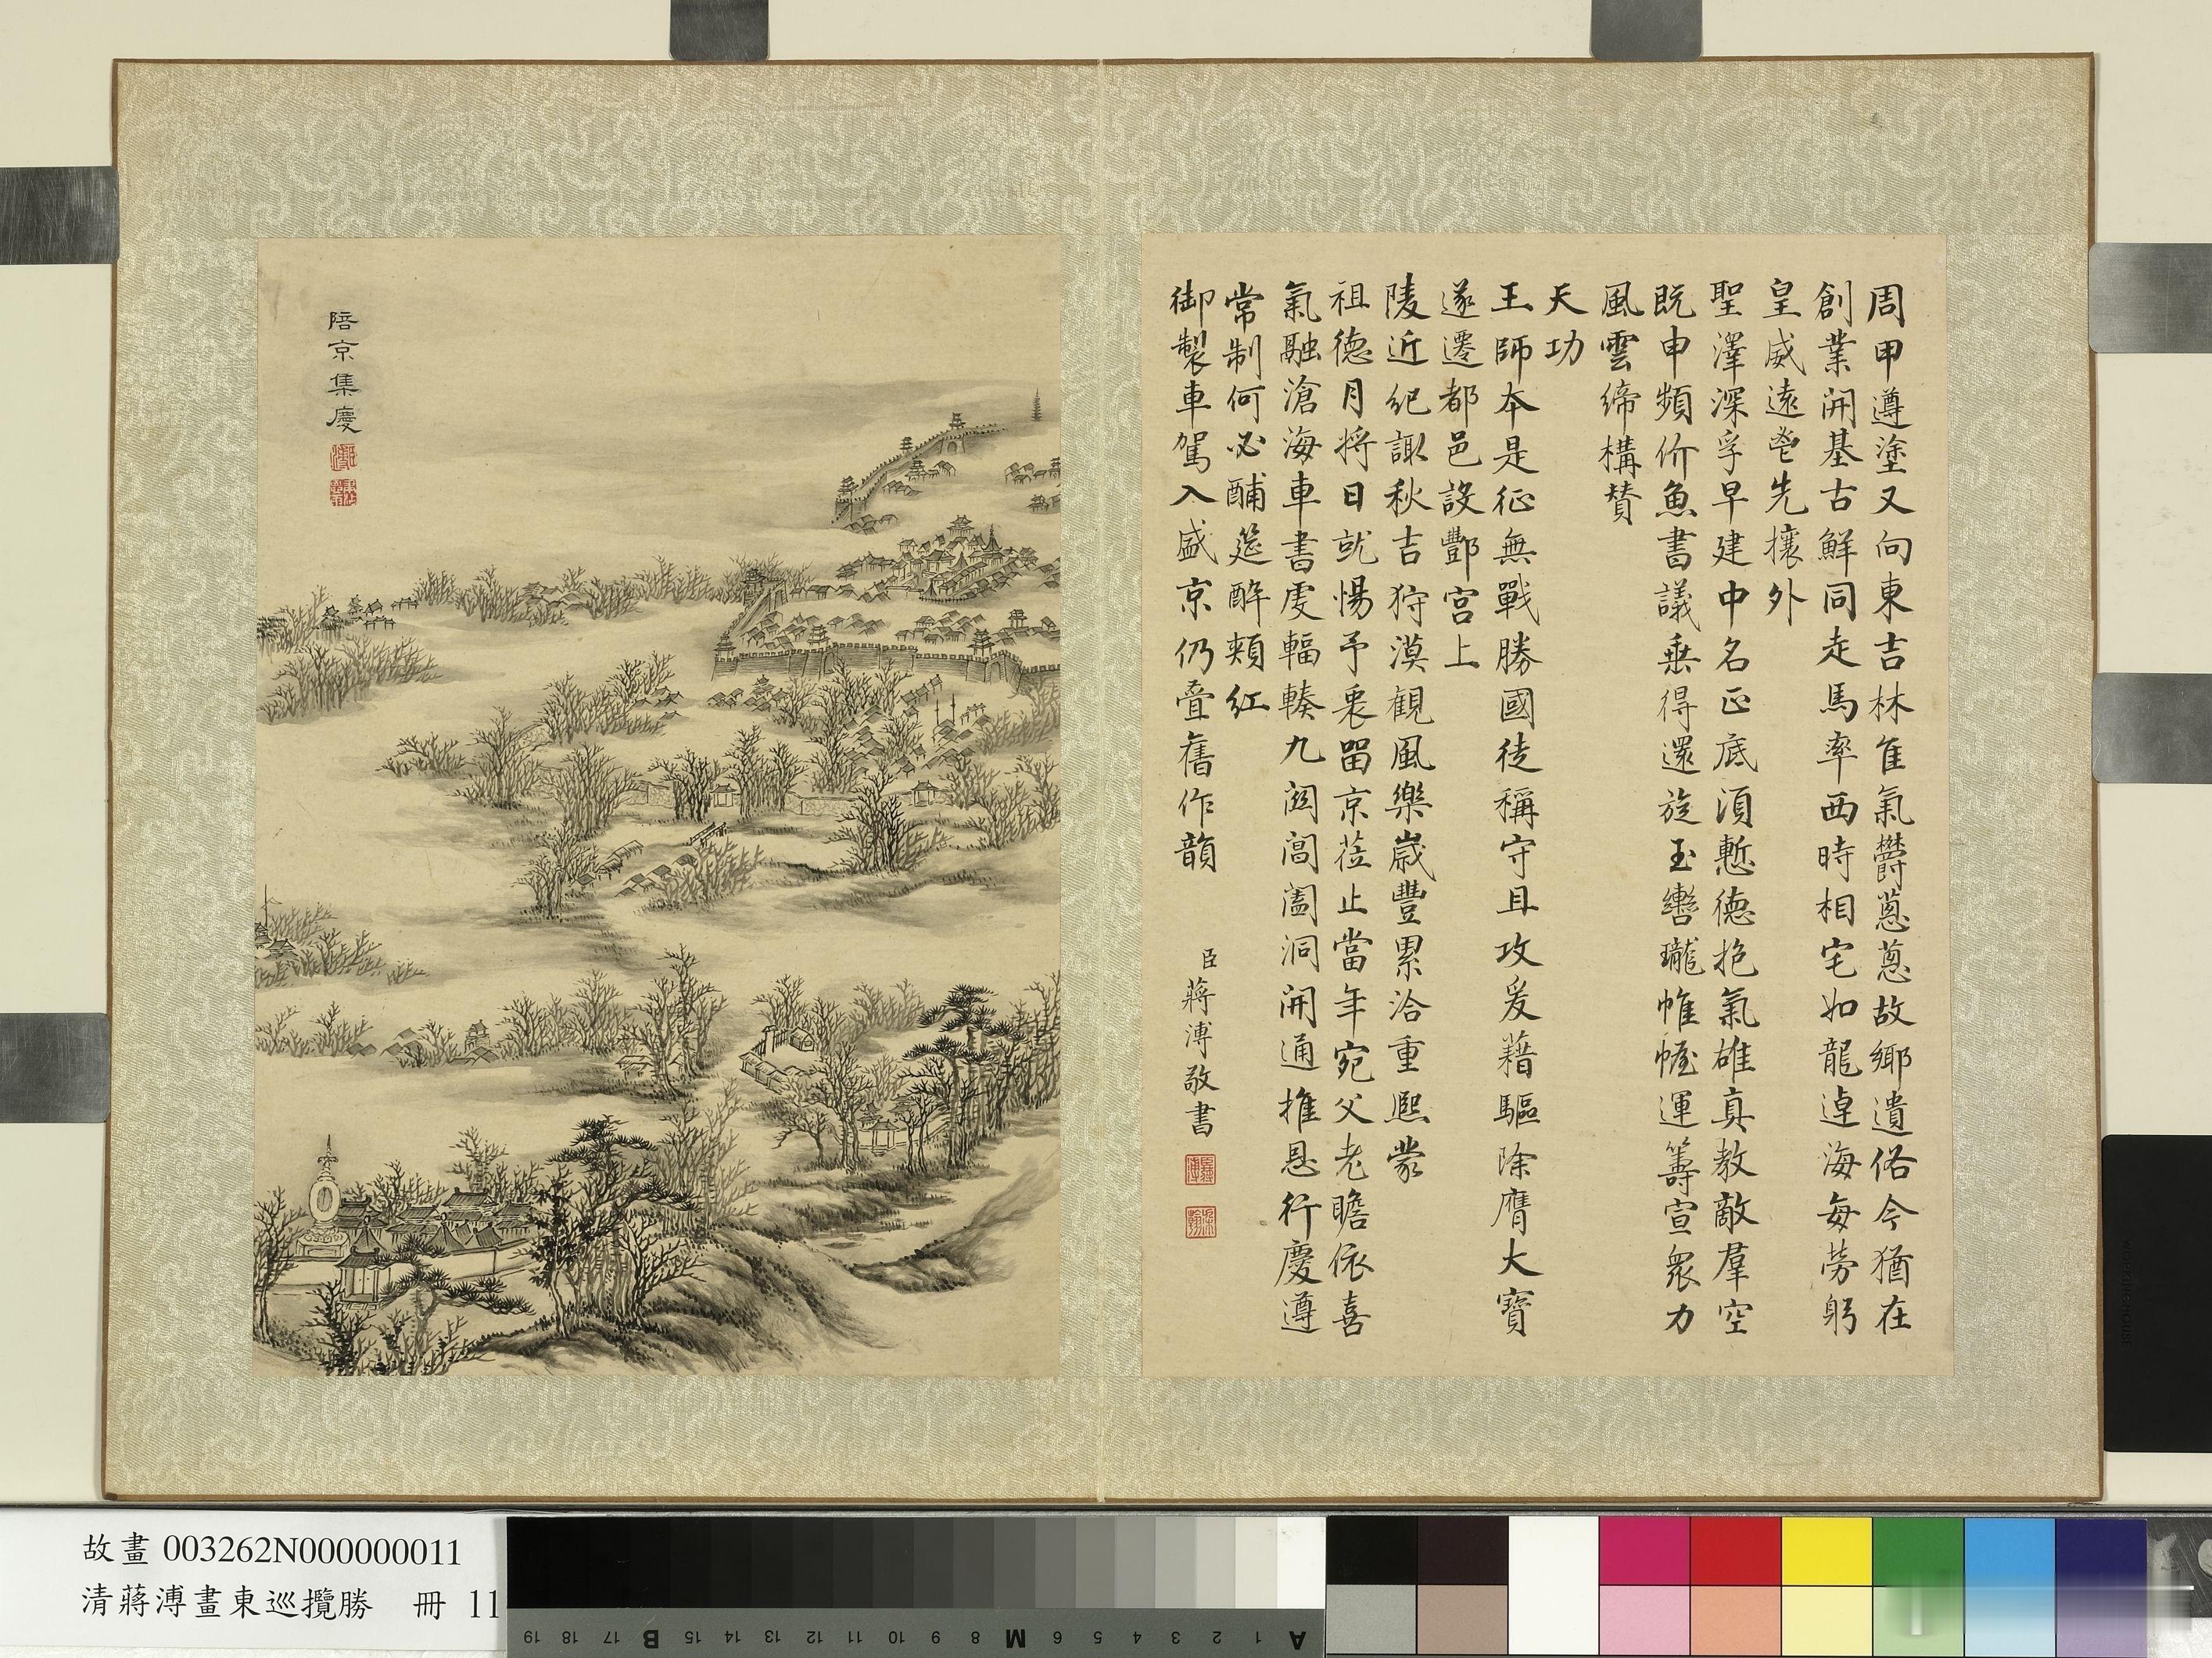 陪京集慶
周甲遵塗又向東吉林隹氣欝蔥蔥故鄉遺俗今猶在
創業開基古鮮同走馬率西時相宅如龍逴海每勞躬
皇威遠鬯先攘外
聖澤深孚早建中名正底須慙德抱氣雄真教敵羣空
既申頻价魚書議乗得還旋玉轡瓏帷幄運籌宣衆力
風雲締構賛
天功
王師本是征無戰勝國徒稱守且攻爰藉驅除膺大寶
遂遷都邑設酆宮上
陵近紀諏秋吉狩漠觀風樂歲豐累洽重熙蒙
祖德月將日就惕予衷留京蒞止當年宛父老瞻依喜
氣融滄海車書處輻輳九閎閶闔洞開通推恩行慶遵
常制何必酺筵醉頰紅
御製車駕入盛京仍疊舊作韻
臣蔣溥敬書
故畫003262N000000011
清蔣溥畫東巡攬勝 冊 11
19 18 17 B 15 14 13 12 11 10 9 8 M 6 5 4 3 2 1 A